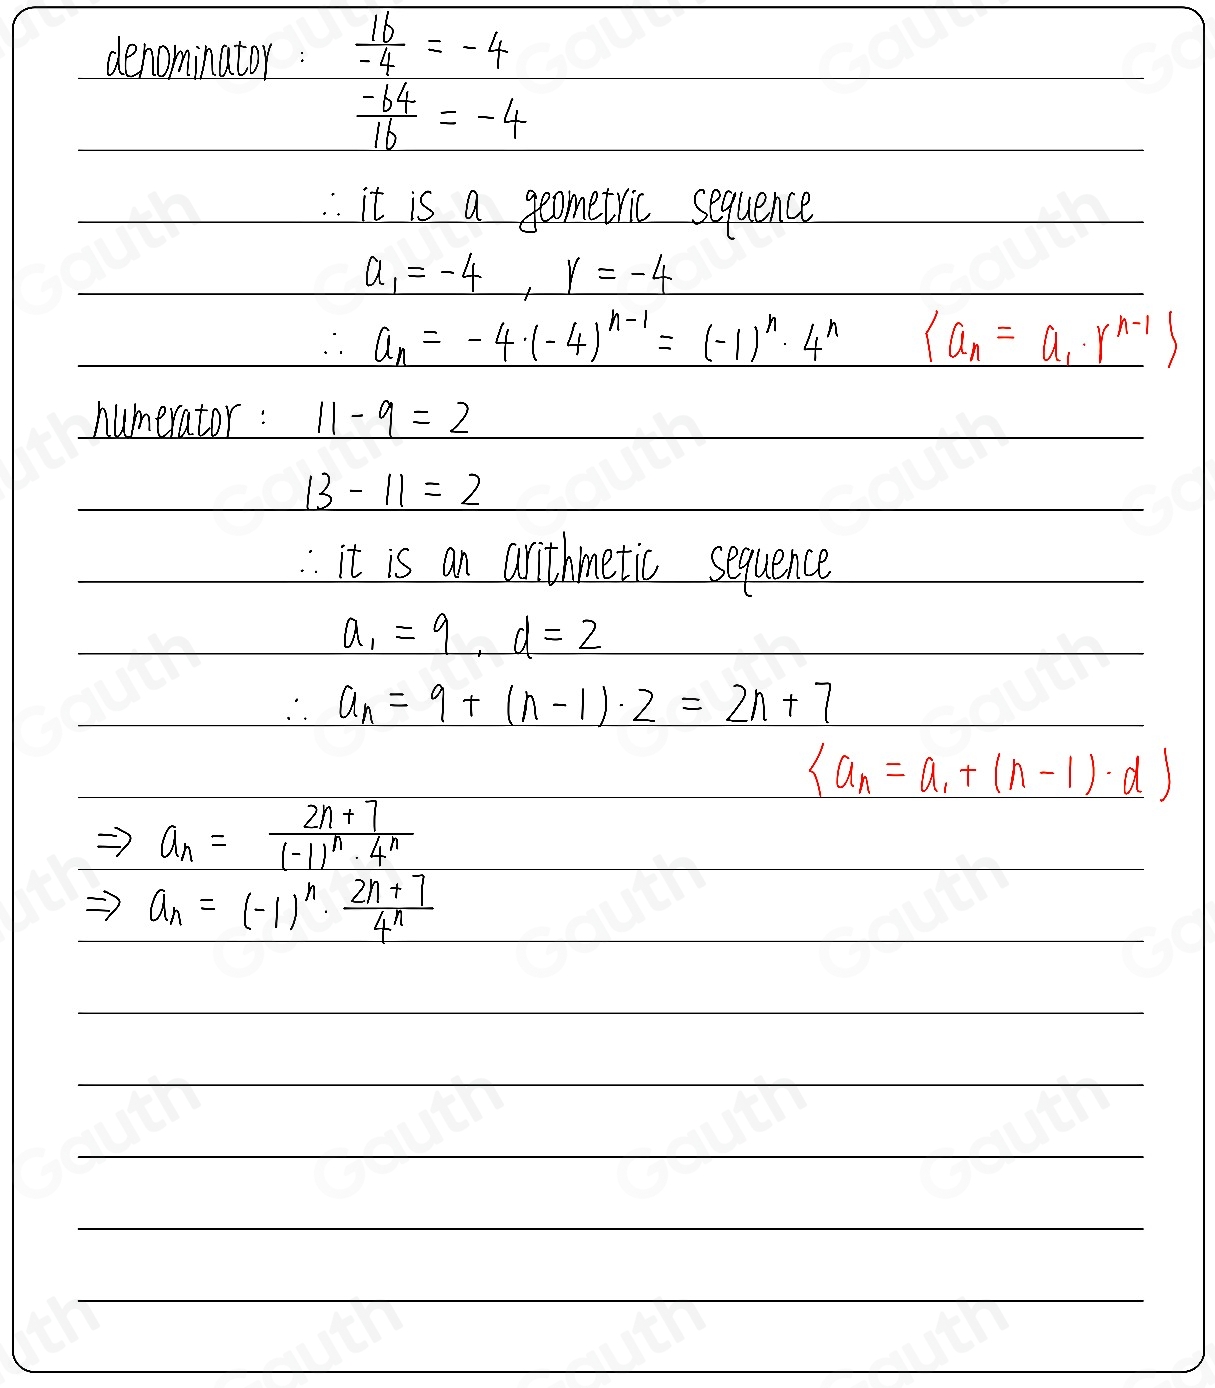 denominator : 16/-4 = -4
-64/16 = -4
∴ it is a geometric sequence
a₁ = -4 , r = -4
∴ aₙ = -4·(-4)ⁿ⁻¹ = (-1)ⁿ · 4ⁿ (aₙ = a₁·rⁿ⁻¹)
numerator : 11 - 9 = 2
13 - 11 = 2
∴ it is an arithmetic sequence
a₁ = 9 , d = 2
∴ aₙ = 9 + (n-1)·2 = 2n + 7
(aₙ = a₁ + (n-1)·d)
⇒ aₙ = (2n+7)/((-1)ⁿ · 4ⁿ)
⇒ aₙ = (-1)ⁿ · (2n+7)/4ⁿ